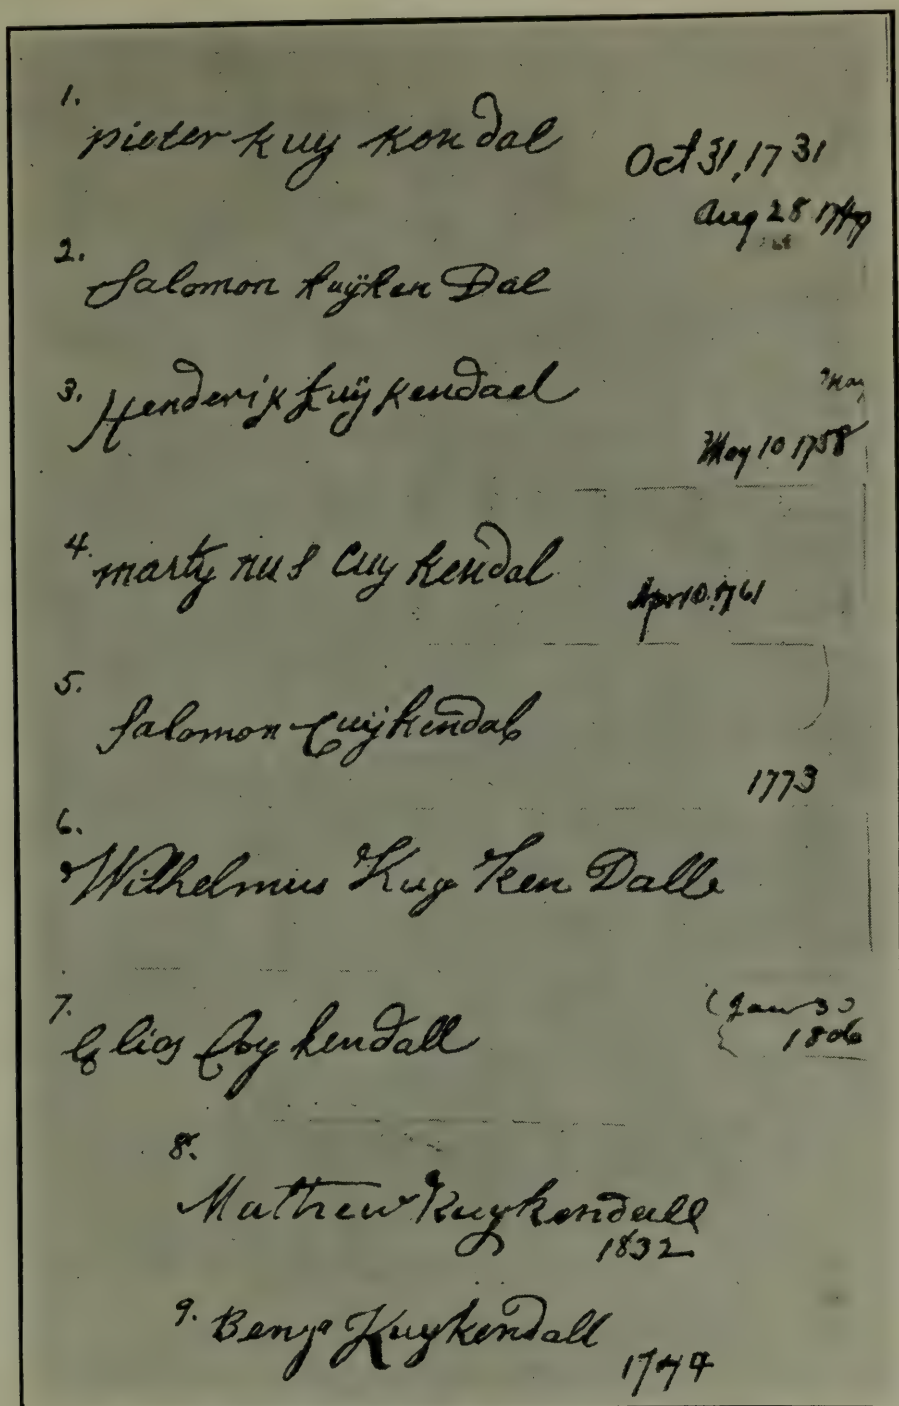 1.
pieter kuy kondal Oct 31, 1731
Aug 28
2.
Salomon kuÿken Dal
3. Henderik kuÿkendael
May 10 1758
4. martynus Cuykendal
Apr 10, 1761
5.
Salomon Cuÿkendal
1773
6.
Wilhelmus Kuy Ken Dalle
7.
Elias Coykendall
(Jan 30
1806
8.
Mathew Kuykendall
1832
9. Benja Kuykendall